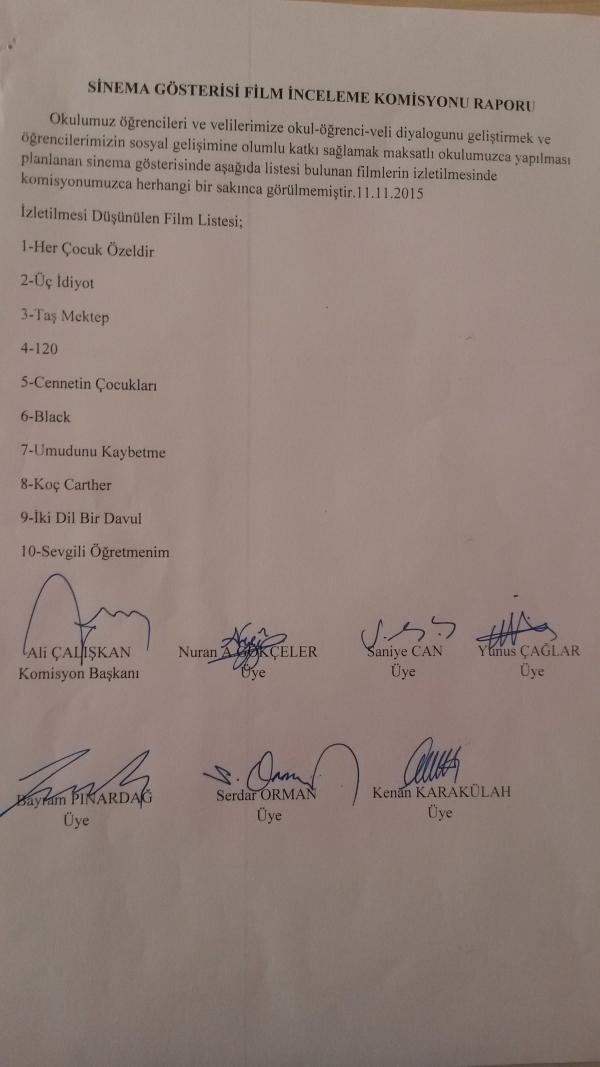 SİNEMA GÖSTERİSİ FİLM İNCELEME KOMİSYONU RAPORU
Okulumuz öğrencileri ve velilerimize okul-öğrenci-veli diyalogunu geliştirmek ve
öğrencilerimizin sosyal gelişimine olumlu katkı sağlamak maksatlı okulumuzca yapılması
planlanan sinema gösterisinde aşağıda listesi bulunan filmlerin izletilmesinde
komisyonumuzca herhangi bir sakınca görülmemiştir.11.11.2015
İzletilmesi Düşünülen Film Listesi;
1-Her Çocuk Özeldir
2-Üç İdiyot
3-Taş Mektep
4-120
5-Cennetin Çocukları
6-Black
7-Umudunu Kaybetme
8-Koç Carther
9-İki Dil Bir Davul
10-Sevgili Öğretmenim
Ali ÇALIŞKAN Nuran Saniye CAN Yunus ÇAĞLAR
Komisyon Başkanı Üye Üye Üye
Bayram PINARDAĞ Serdar ORMAN Kenan KARAKÜLAH
Üye Üye Üye